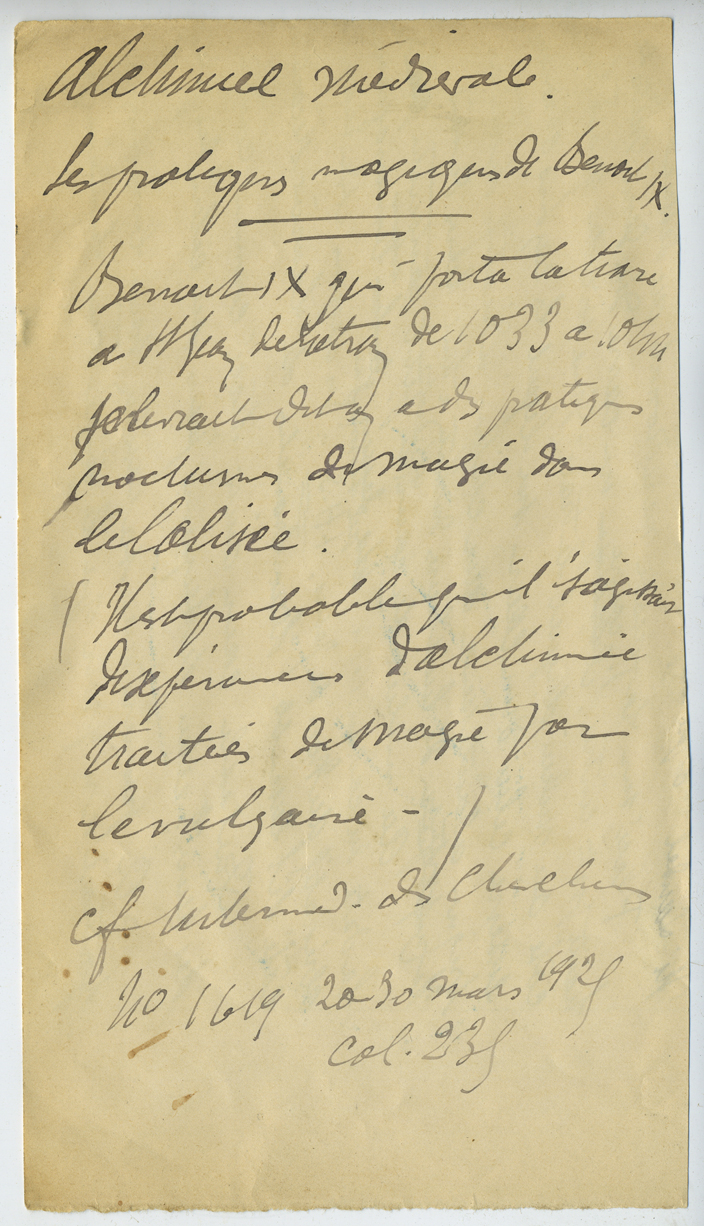 Alchimie médiévale.
Les pratiques magiques de Benoit IX.
Benoit IX qui porta la tiare
a de 1033 a 1044
se livrait dit on a des pratiques
nocturnes de magie dans
le Colisée.
(Il est probable qu'il s'agissait
d'expériences d'alchimie
traitées de magie par
le vulgaire - )
cf. Intermed. des Chercheurs
No 1619 20-30 mars 1925
col. 235